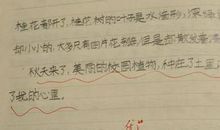 桂花都开了,桂花树的叶子是水滴形,深绿
却小小的,大多只有四片花瓣,但是却散发着
秋天来了,美丽的校园植物,种在了土里
了我的心里。